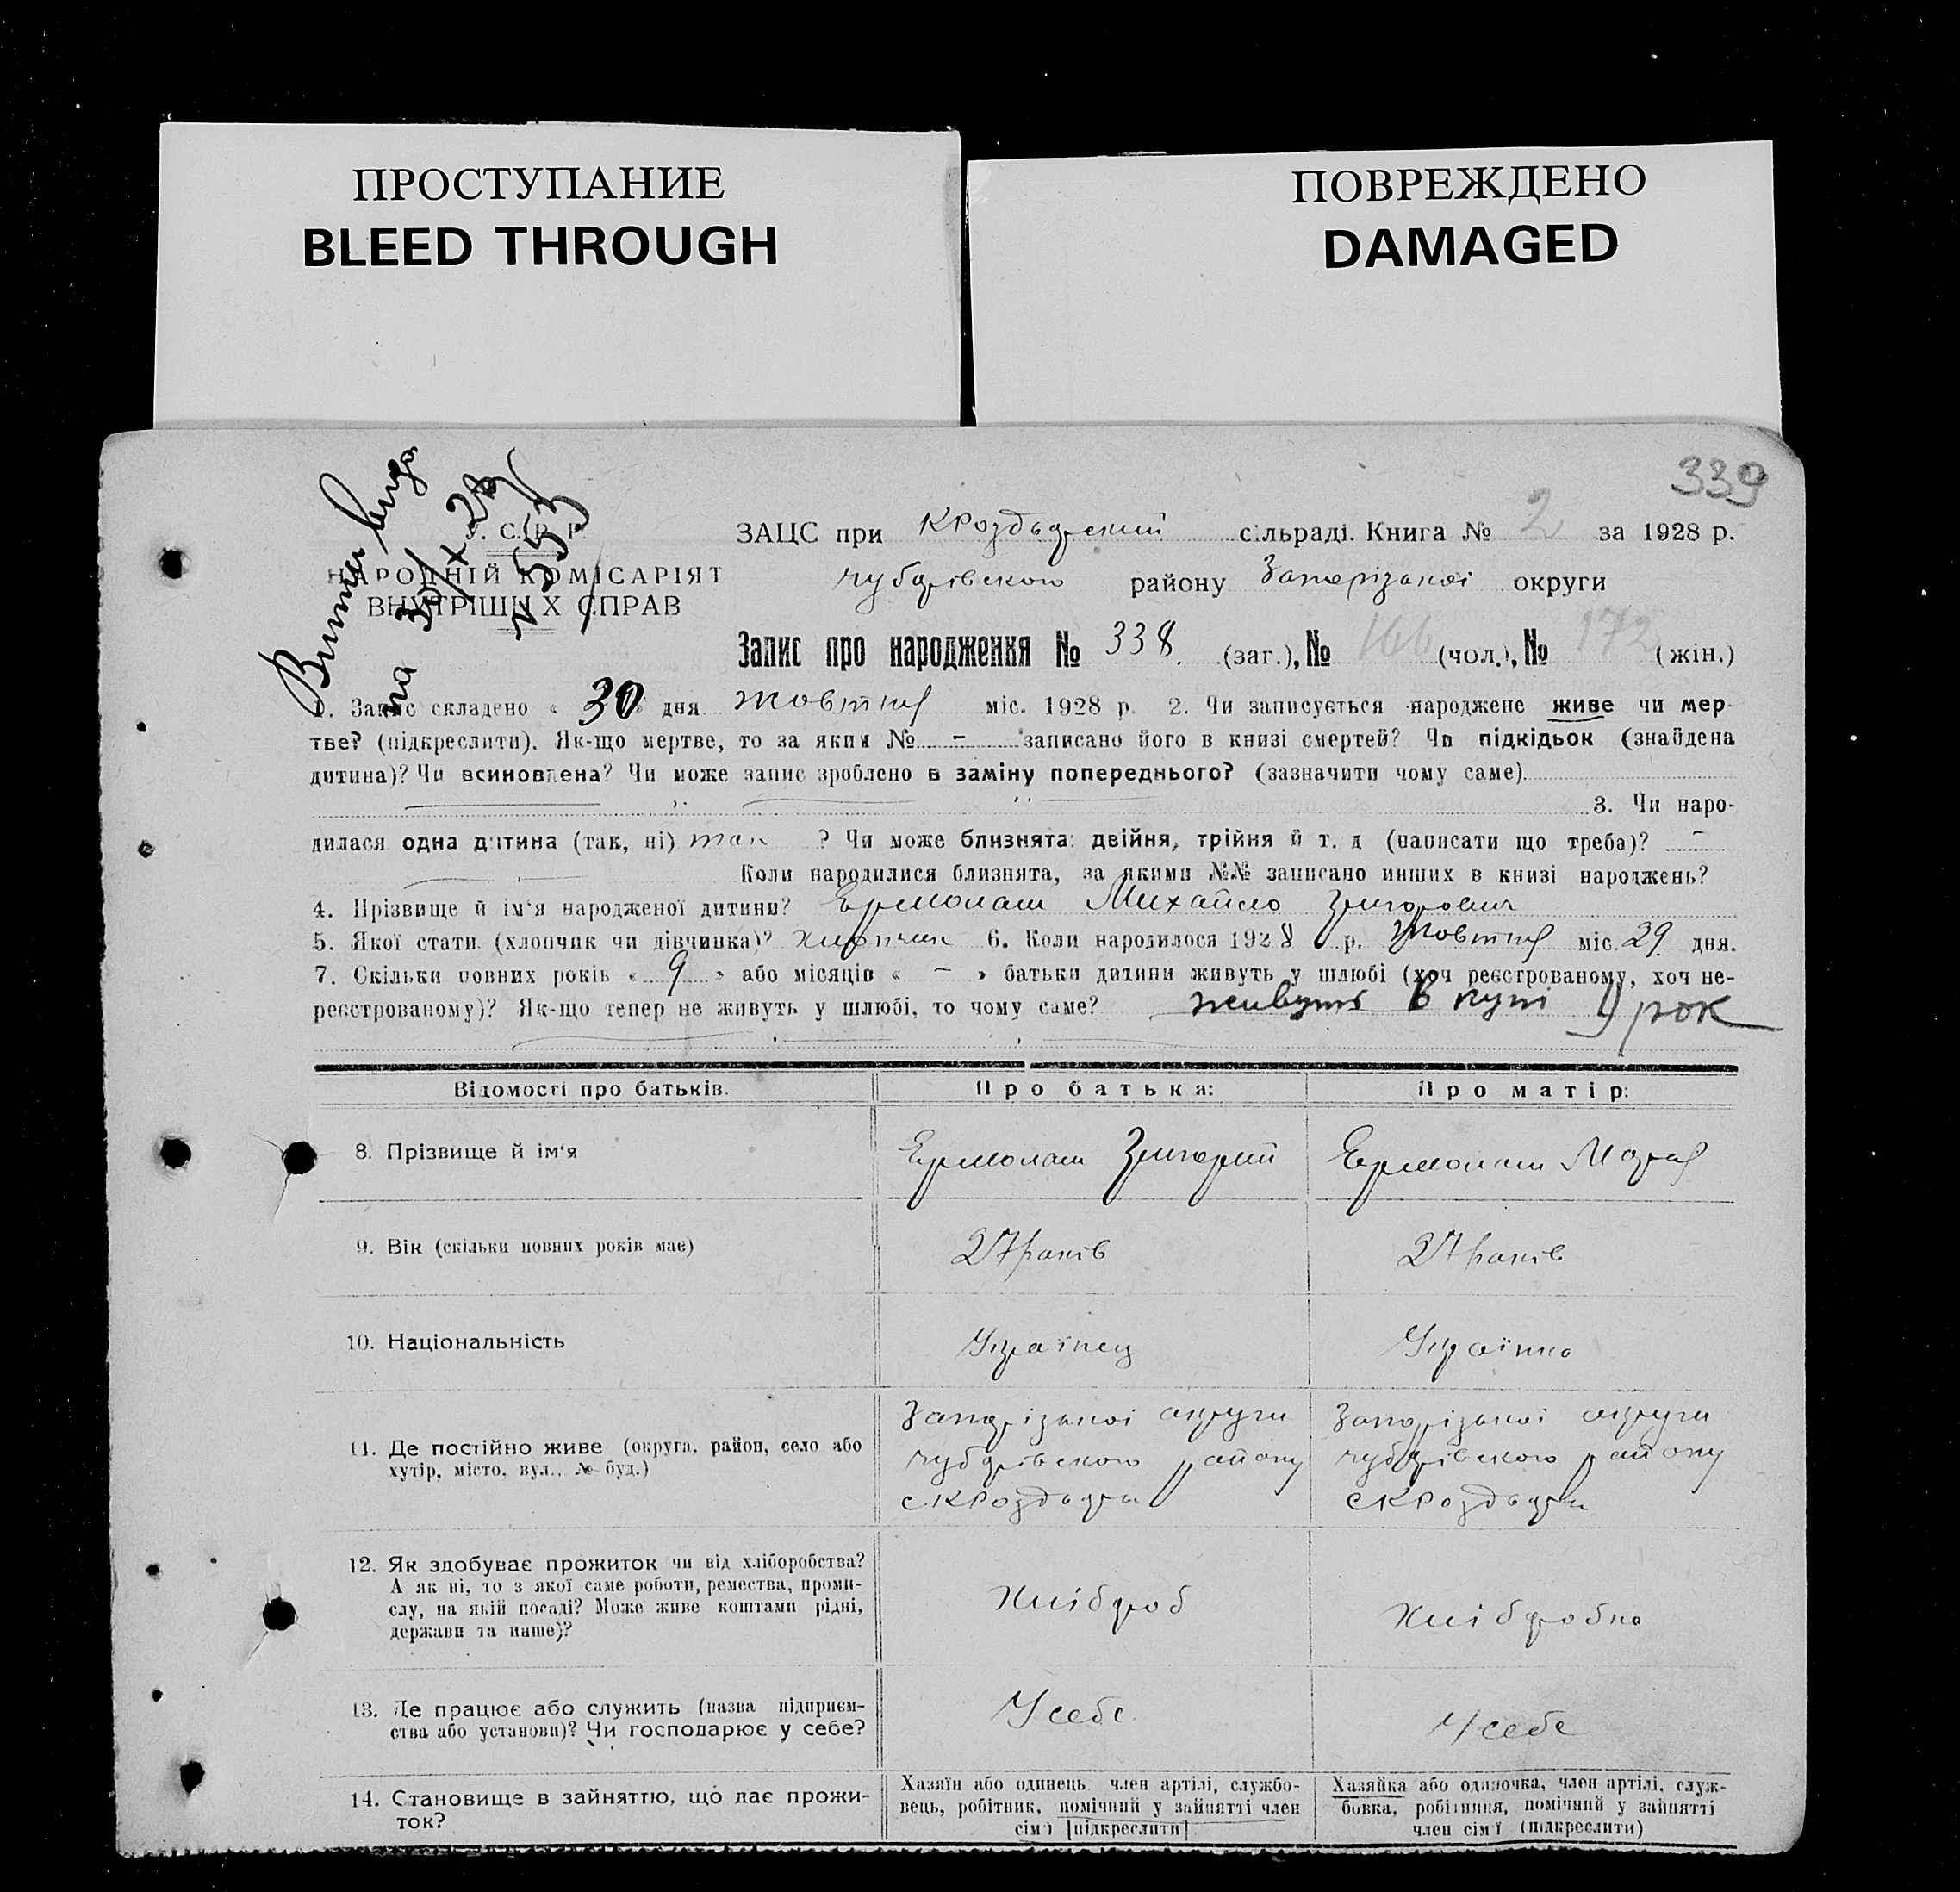 ПРОСТУПАНИЕ
BLEED THROUGH
ПОВРЕЖДЕНО
DAMAGED
339
Витяг видан
на 30/X 28
№ 553
У. С. Р. Р.
НАРОДНІЙ КОМІСАРІЯТ
ВНУТРІШНІХ СПРАВ
ЗАЦС при КРоздорський сільраді. Книга № 2 за 1928 р.
чубарівського району Запорізької округи
Запис про народження № 338. (заг.), № 166 (чол.), № 172 (жін.)
1. Запис складено « 30 » дня жовтня міс. 1928 р. 2. Чи записується народжене живе чи мер-
тве? (підкреслити). Як-що мертве, то за яким № - записано його в книзі смертей? Чи підкідьок (знайдена
дитина)? Чи всиновлена? Чи може запис зроблено в заміну попереднього? (зазначити чому саме)
3. Чи наро-
дилася одна дитина (так, ні) так ? Чи може близнята: двійня, трійня й т. д (написати що треба)? -
Коли народилися близнята, за якими №№ записано инших в книзі народжень?
4. Прізвище й ім'я народженої дитини? Ермолаш Михайло Григорович
5. Якої стати (хлопчик чи дівчинка)? хлопчик 6. Коли народилося 1928 р. жовтня міс. 29 дня.
7. Скільки повних років « 9 » або місяців « - » батьки дитини живуть у шлюбі (хоч реєстрованому, хоч не-
реєстрованому)? Як-що тепер не живуть у шлюбі, то чому саме? живуть в купі 9 рок
Відомості про батьків. Про батька: Про матір:
8. Прізвище й ім'я Ермолаш Григорий Ермолаш Марія
9. Вік (скільки повних років має) 27 років 27 років
10. Національність Українец Українка
11. Де постійно живе (округа, район, село або
хутір, місто, вул., № буд.)
Запорізької округи
чубарівського району
с КРоздори
Запорізької округи
чубарівського району
с КРоздори
12. Як здобуває прожиток чи від хліборобства?
А як ні, то з якої саме роботи, ремества, проми-
слу, на якій посаді? Може живе коштами рідні,
держави та инше)?
Хлібороб
Хліборобка
13. Де працює або служить (назва підприєм-
ства або установи)? Чи господарює у себе?
У себе
У себе
14. Становище в зайняттю, що дає прожи-
ток?
Хазяїн або одинець, член артілі, службо-
вець, робітник, помічний у зайнятті член
сім'ї [підкреслити]
Хазяйка або одиночка, член артілі, служ-
бовка, робітниця, помічний у зайнятті
член сім'ї (підкреслити)